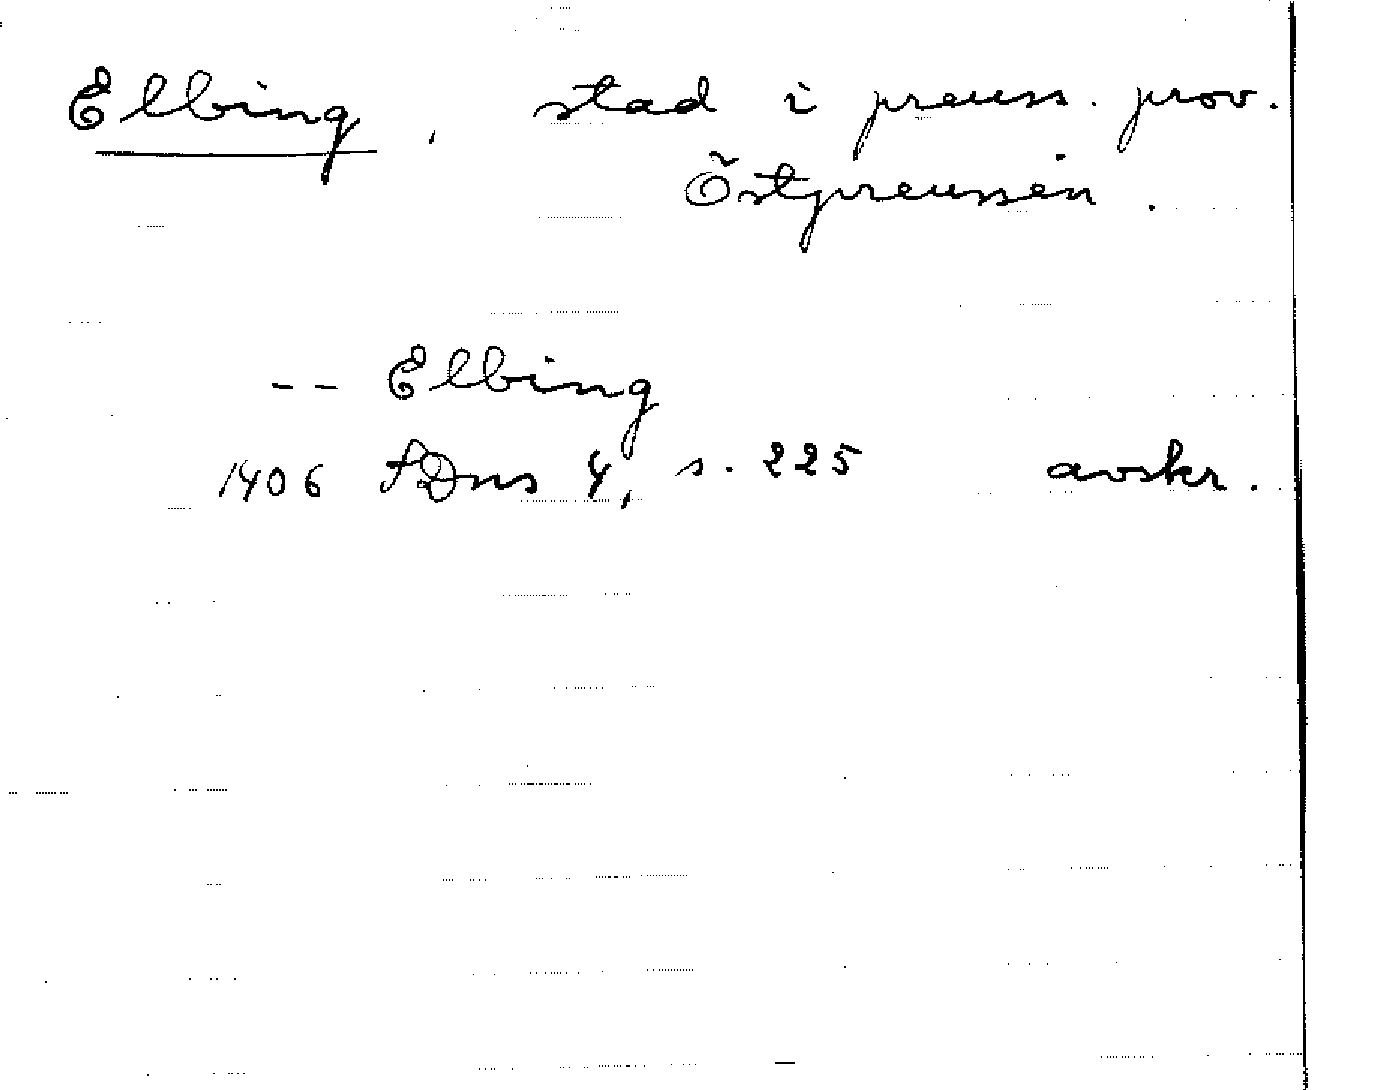 Elbing, stad i preuss. prov.
Östpreussen.
-- Elbing
1406 SDns 4, s. 225 avskr.